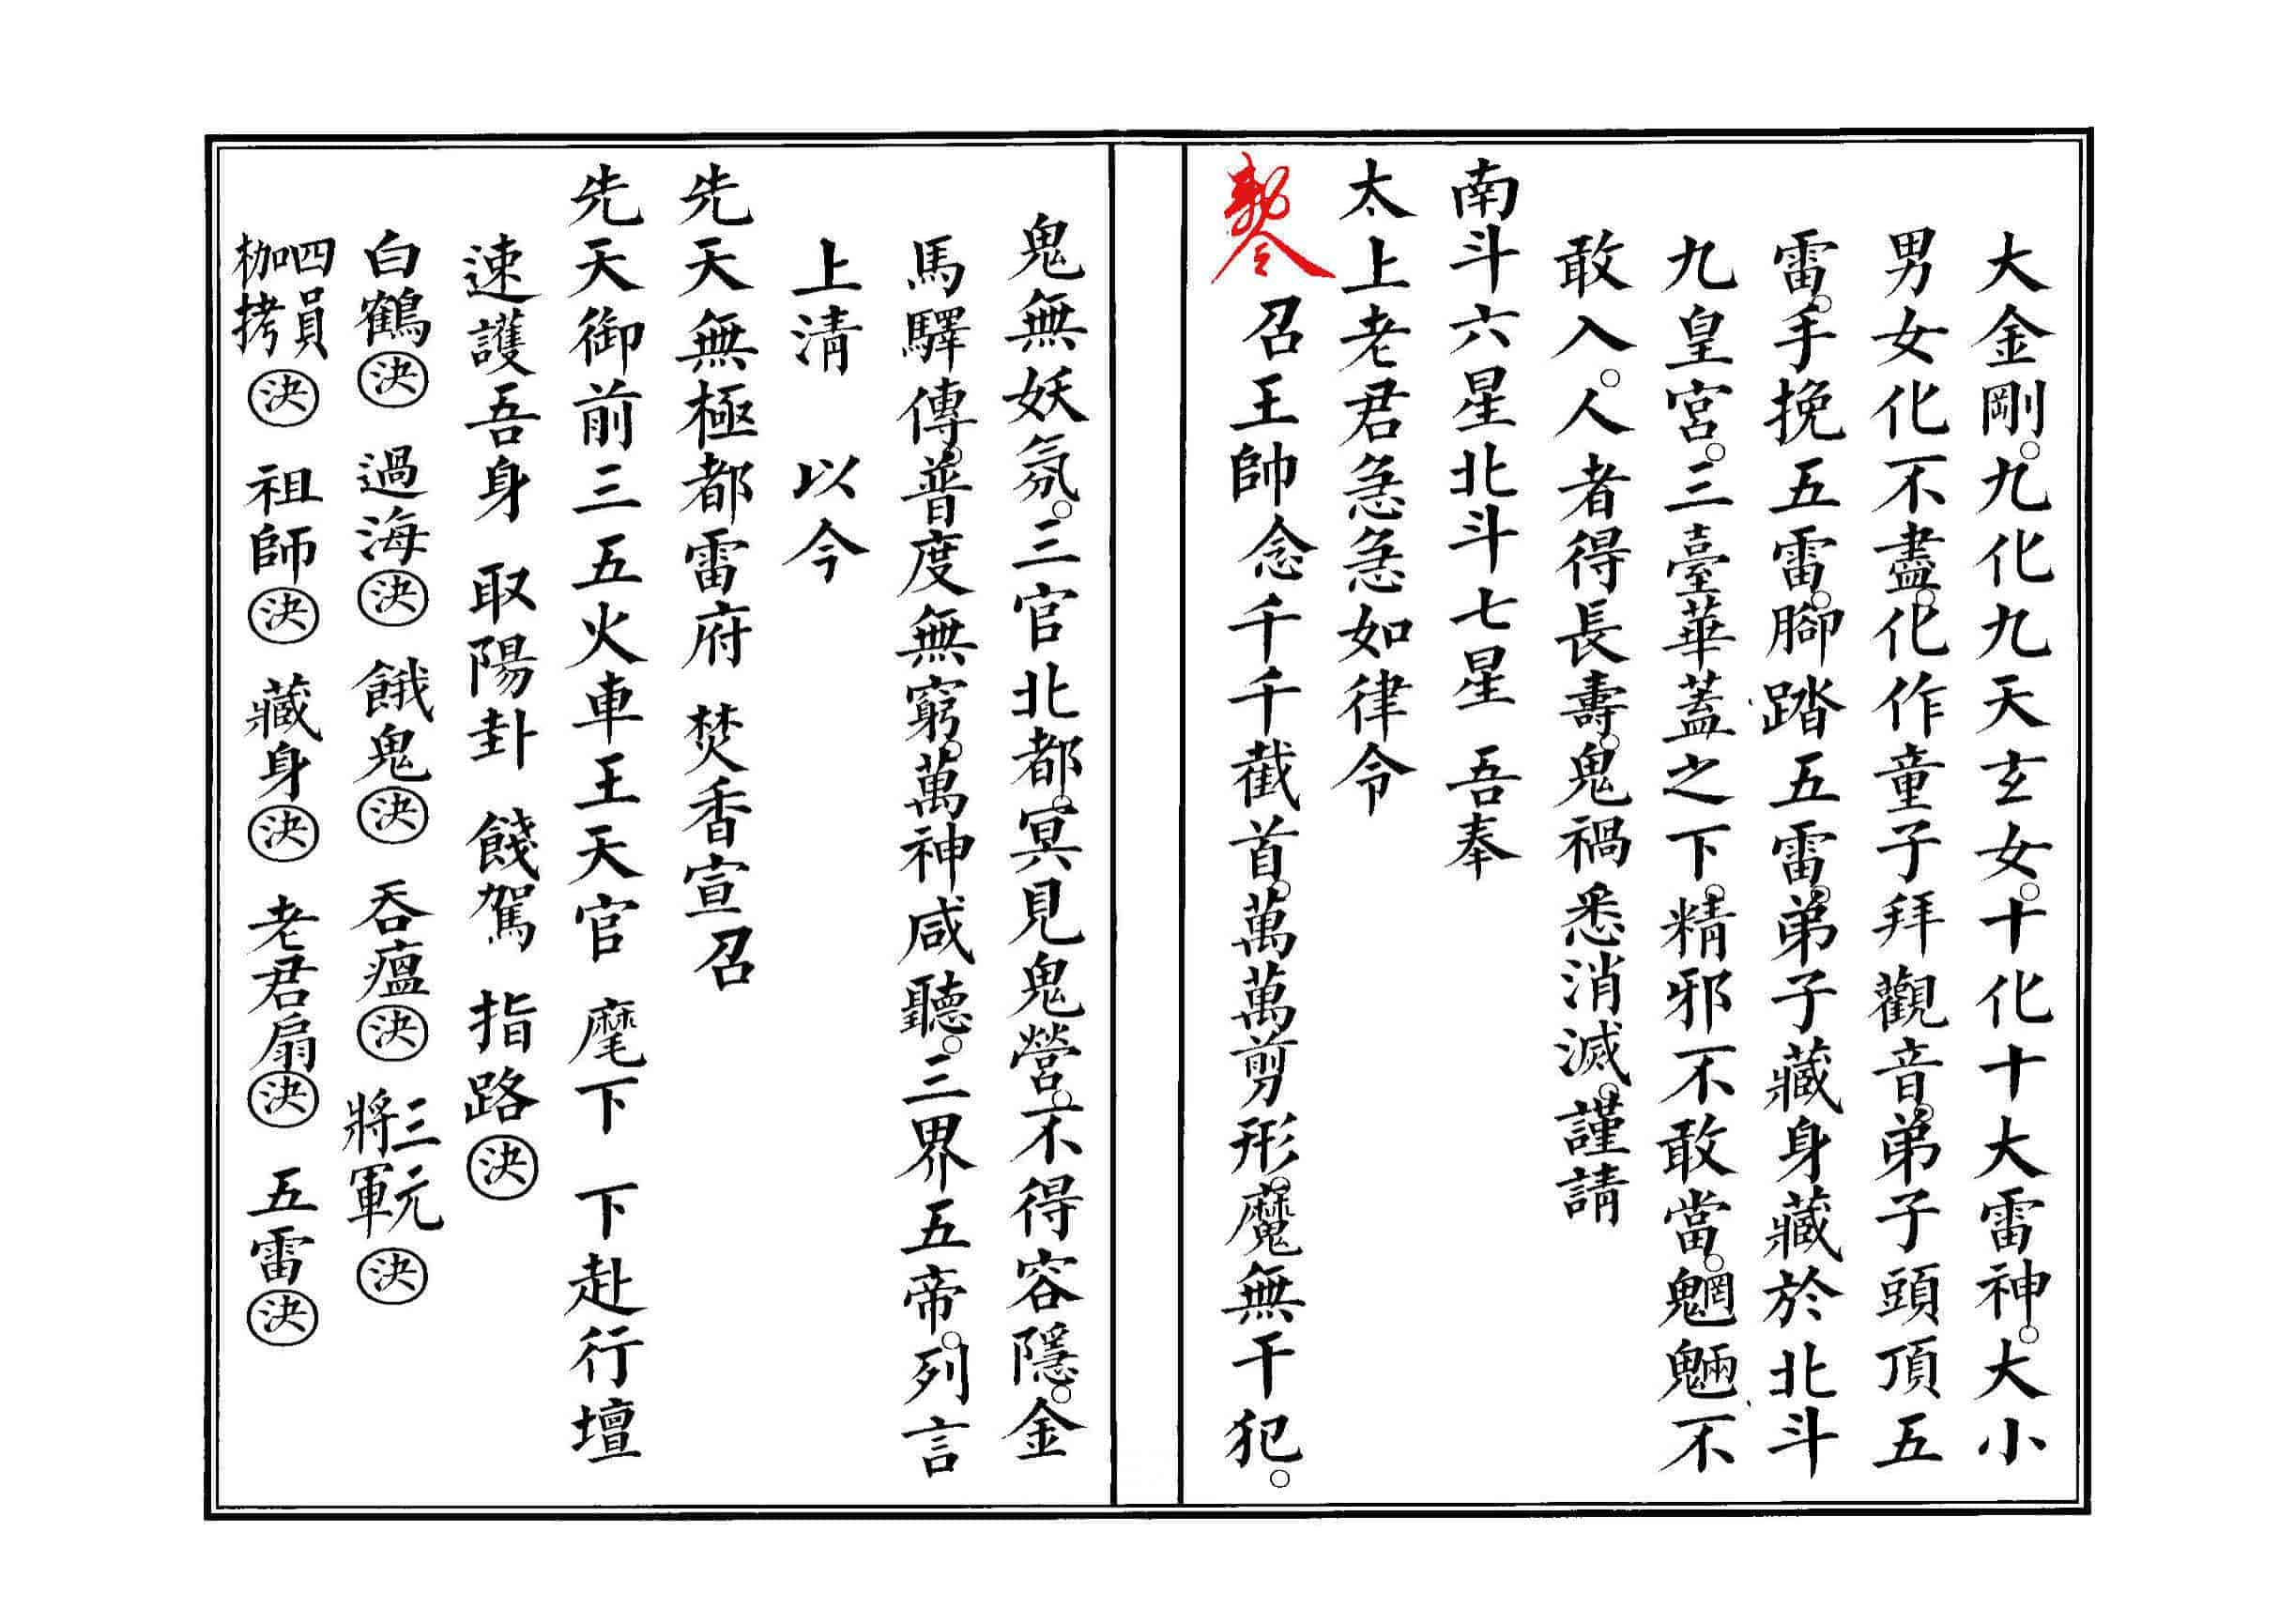 大金剛。九化九天玄女。十化十大雷神。大小
男女化不盡。化作童子拜觀音。弟子頭頂五
雷。手挽五雷。腳踏五雷。弟子藏身藏於北斗
九皇宮。三臺華蓋之下。精邪不敢當。魍魎不
敢入。人者得長壽。鬼禍悉消滅。謹請
南斗六星北斗七星 吾奉
太上老君急急如律令
敕令 召王帥念千千截首。萬萬剪形。魔無干犯。
鬼無妖氛。三官北都。冥見鬼營。不得容隱。金
馬驛傳。普度無窮。萬神咸聽。三界五帝。列言
上清 以今
先天無極都雷府 焚香宣召
先天御前三五火車王天官 麾下 下赴行壇
速護吾身 取陽卦 餞駕 指路決
白鶴決 過海決 餓鬼決 吞瘟決 三元將軍決
四員枷拷決 祖師決 藏身決 老君扇決 五雷決